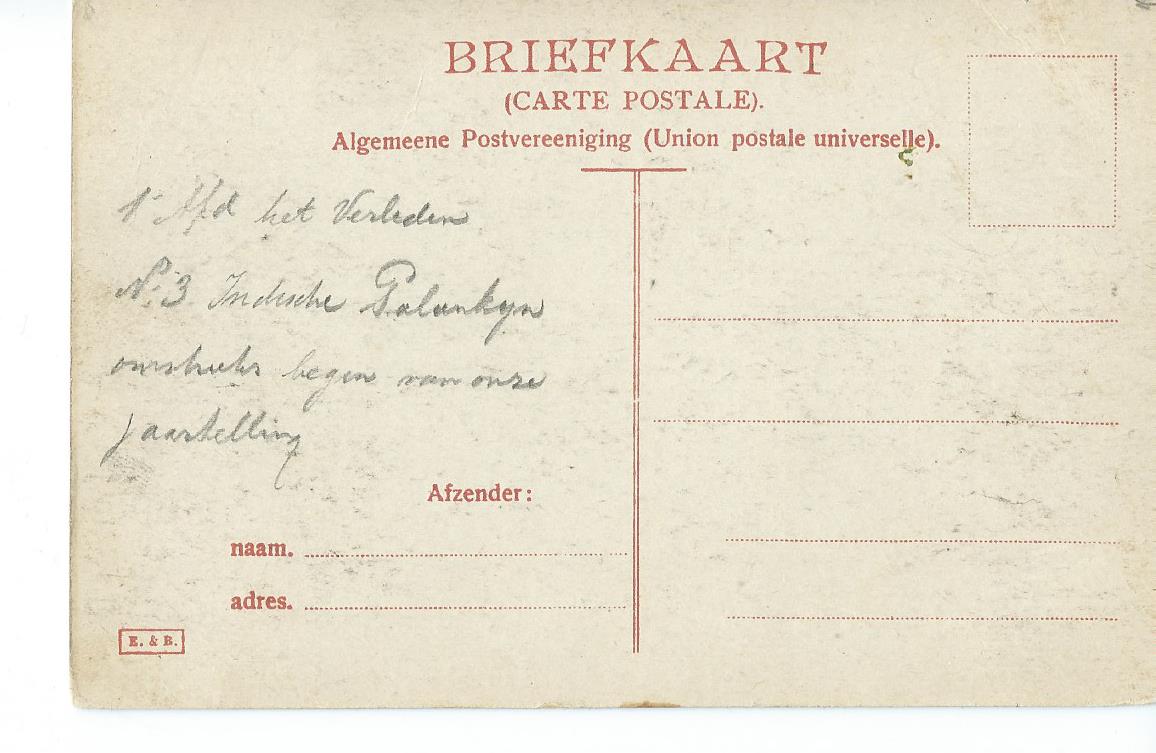 BRIEFKAART
(CARTE POSTALE).
Algemeene Postvereeniging (Union postale universelle).
1e Afd het Verleden
No. 3 Indische Palankyn
omstreeks begin van onze
jaartelling
Afzender:
naam.
adres.
E. & B.